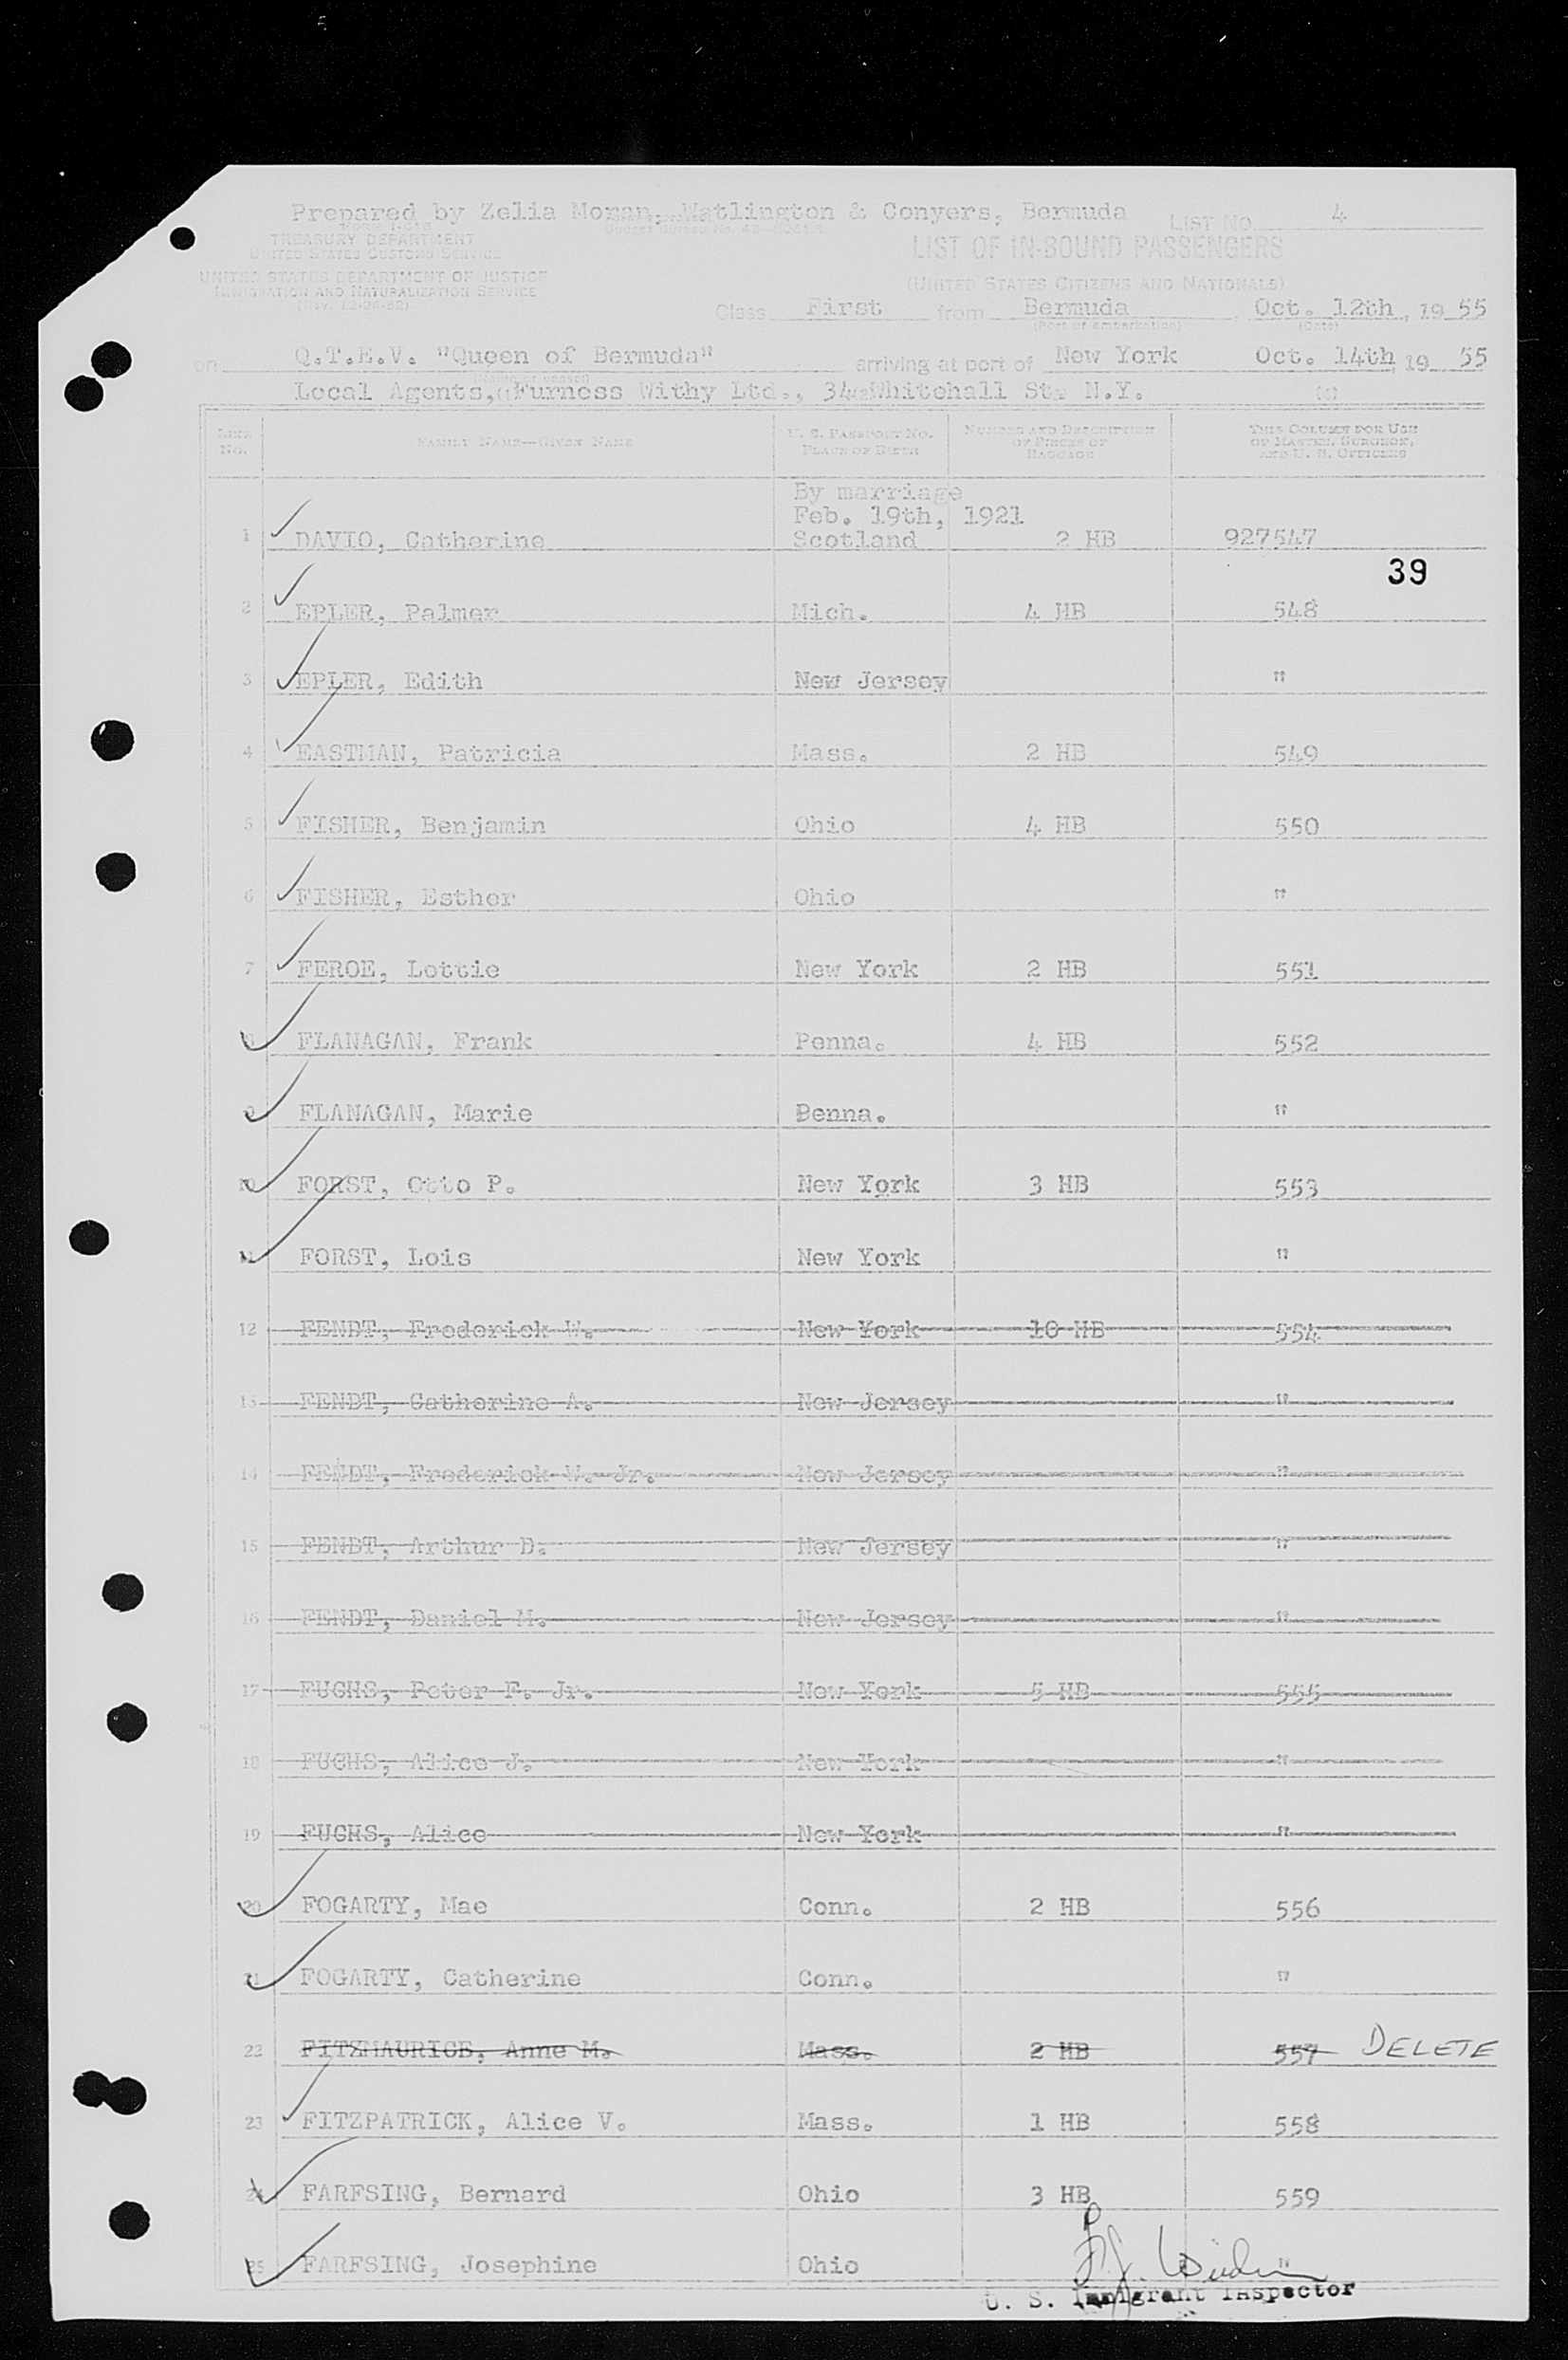 Prepared by Zelia Moran, Watlington & Conyers, Bermuda LIST NO. 4
TREASURY DEPARTMENT
UNITED STATES CUSTOMS SERVICE
UNITED STATES DEPARTMENT OF JUSTICE
IMMIGRATION AND NATURALIZATION SERVICE
LIST OF IN-BOUND PASSENGERS
(UNITED STATES CITIZENS AND NATIONALS)
Class First from Bermuda, Oct. 12th, 19 55
(Port of embarkation) (Date)
on Q.T.E.V. "Queen of Bermuda" arriving at port of New York Oct. 14th, 19 55
Local Agents, Furness Withy Ltd., 34 Whitehall St. N.Y.
LINE NO. FAMILY NAME—GIVEN NAME U. S. PASSPORT NO. PLACE OF BIRTH NUMBER AND DESCRIPTION OF PIECES OF BAGGAGE THIS COLUMN FOR USE OF MASTER, SURGEON, AND U. S. OFFICERS
By marriage
Feb. 19th, 1921
1 DAVIO, Catherine Scotland 2 HB 927547
39
2 EPLER, Palmer Mich. 4 HB 548
3 EPLER, Edith New Jersey "
4 EASTMAN, Patricia Mass. 2 HB 549
5 FISHER, Benjamin Ohio 4 HB 550
6 FISHER, Esther Ohio "
7 FEROE, Lottie New York 2 HB 551
8 FLANAGAN, Frank Penna. 4 HB 552
9 FLANAGAN, Marie Penna. "
10 FORST, Otto P. New York 3 HB 553
11 FORST, Lois New York "
12 FENDT, Frederick W. New York 10 HB 554
13 FENDT, Catherine A. New Jersey "
14 FENDT, Frederick W. Jr. New Jersey "
15 FENDT, Arthur D. New Jersey "
16 FENDT, Daniel M. New Jersey "
17 FUCHS, Peter F. Jr. New York 5 HB 555
18 FUCHS, Alice J. New York "
19 FUCHS, Alice New York "
20 FOGARTY, Mae Conn. 2 HB 556
21 FOGARTY, Catherine Conn. "
22 FITZMAURICE, Anne M. Mass. 2 HB 557 DELETE
23 FITZPATRICK, Alice V. Mass. 1 HB 558
24 FARFSING, Bernard Ohio 3 HB 559
25 FARFSING, Josephine Ohio "
U. S. Immigrant Inspector